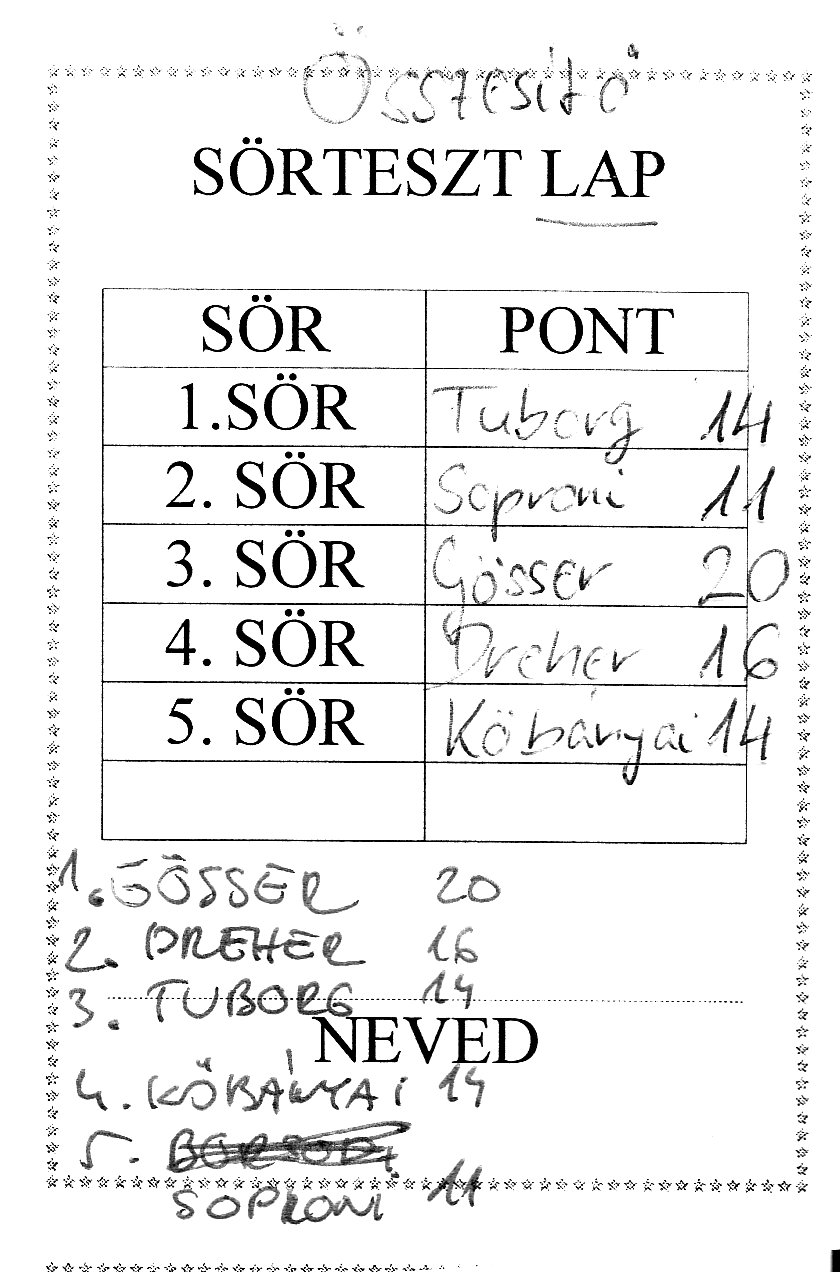 Összesítő
SÖRTESZT LAP
SÖR PONT
1.SÖR Tuborg 14
2. SÖR Soproni 11
3. SÖR Gösser 20
4. SÖR Dreher 16
5. SÖR Kőbányai 14
1. GÖSSER 20
2. DREHER 16
3. TUBORG 14
NEVED
4. KŐBÁNYAI 14
5. BORSODI
SOPRONI 11